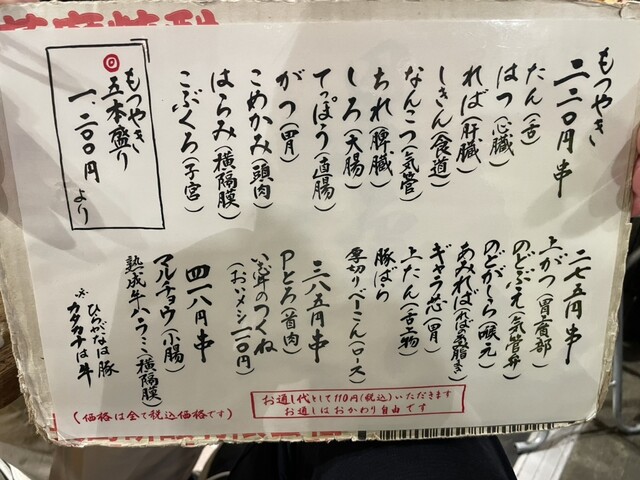 もつやき
二二〇円串
たん(舌)
はつ(心臓)
れば(肝臓)
しきん(食道)
なんこつ(気管)
ちれ(脾臓)
しろ(大腸)
てっぽう(直腸)
がつ(胃)
こめかみ(頭肉)
はらみ(横隔膜)
こぶくろ(子宮)
もつやき
◎五本盛り
一、二〇〇円より
二七五円串
上がつ(胃蓋部)
のどぶえ(気管弁)
のどがしら(喉元)
あみれば(ればの網脂き)
ギャラ芯(胃)
上たん(舌上物)
豚ばら
厚切りベーこん(ロース)
三八五円串
Pとろ(首肉)
(おいメシ一一〇円)
四一八円串
マルチョウ(小腸)
熟成牛ハラミ(横隔膜)
※ひらがなは豚
カタカナは牛
お通し代として110円(税込)いただきます
お通しはおかわり自由です
(価格は全て税込価格です)